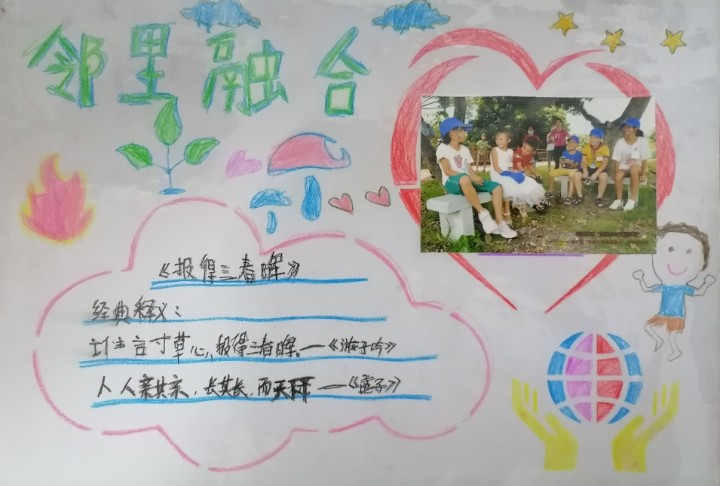 邻里融合
《报得三春晖》
经典释义：
谁言寸草心，报得三春晖。——《游子吟》
人人亲其亲，长其长，而天下平——《孟子》